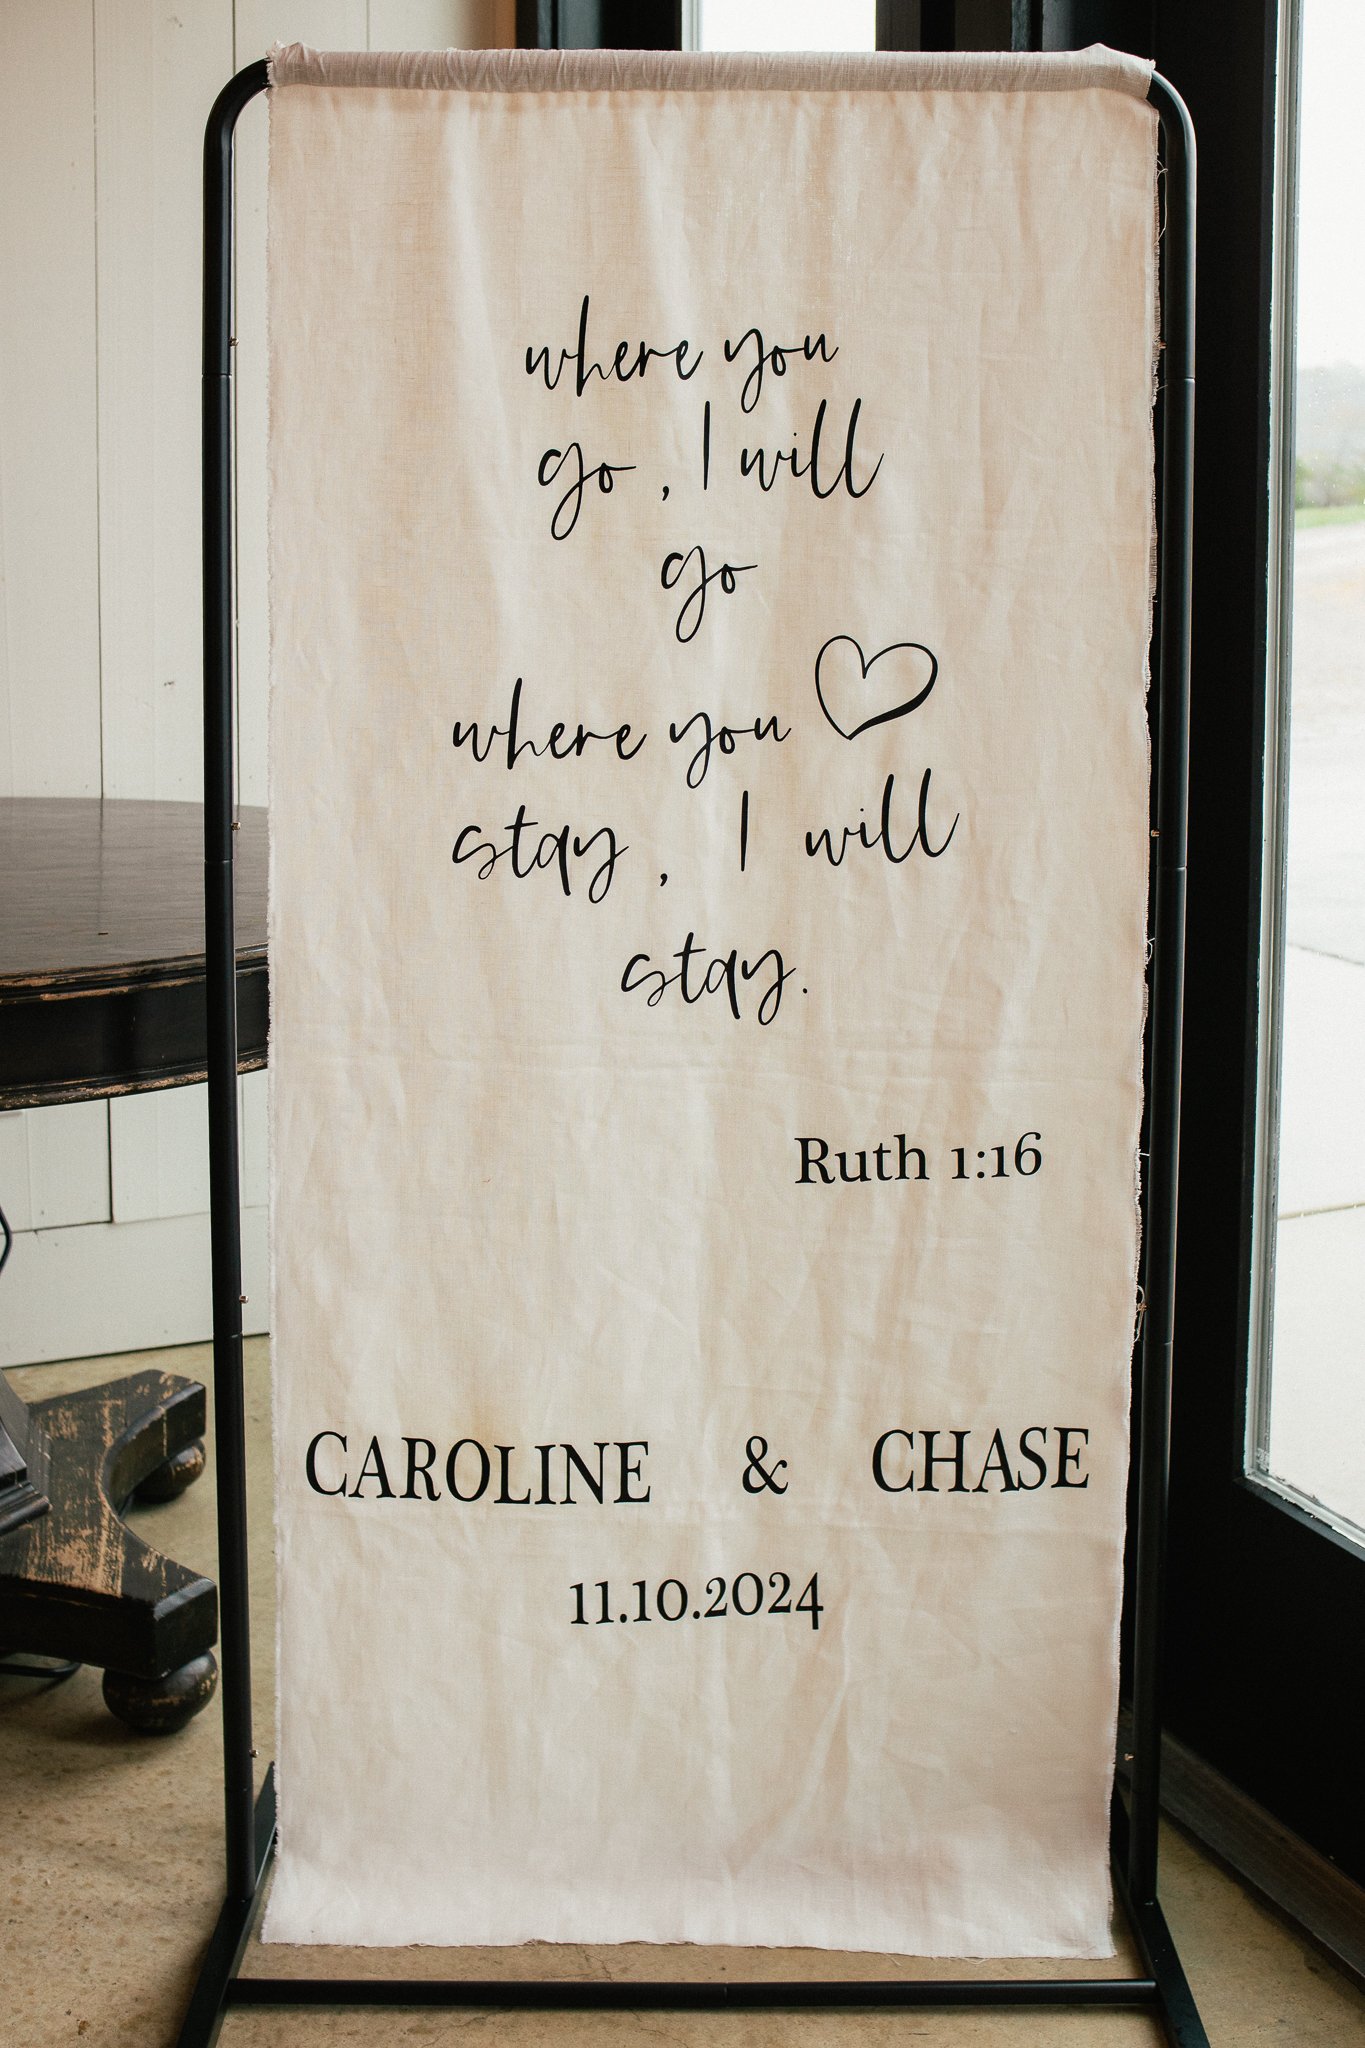 where you
go, I will
go
where you
stay, I will
stay.
Ruth 1:16
CAROLINE & CHASE
11.10.2024